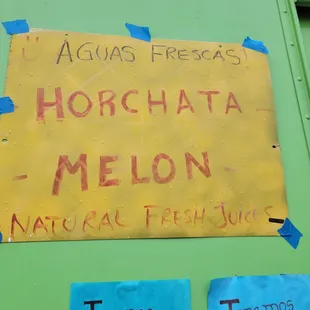 ÁGUAS FRESCAS!
HORCHATA -
- MELON -
NATURAL FRESH JUICES